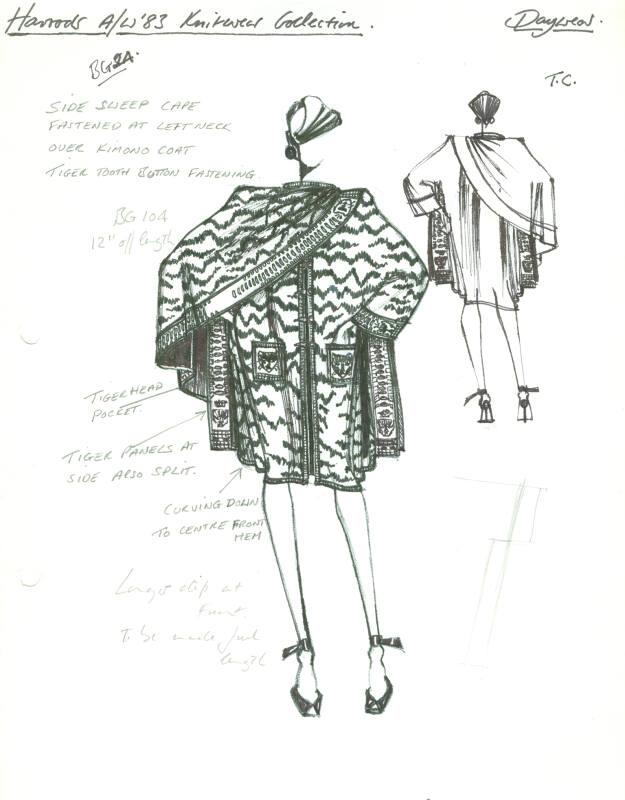 Harrods A/W'83 Knitwear Collection.
Daywear.
BG2A.
T.C.
SIDE SWEEP CAPE
FASTENED AT LEFT NECK
OVER KIMONO COAT
TIGER TOOTH BUTTON FASTENING.
BG 104
12" off length
TIGERHEAD
POCKET.
TIGER PANELS AT
SIDE ALSO SPLIT.
CURVING DOWN
TO CENTRE FRONT
HEM
Longer dip at
Front.
To be made full
length